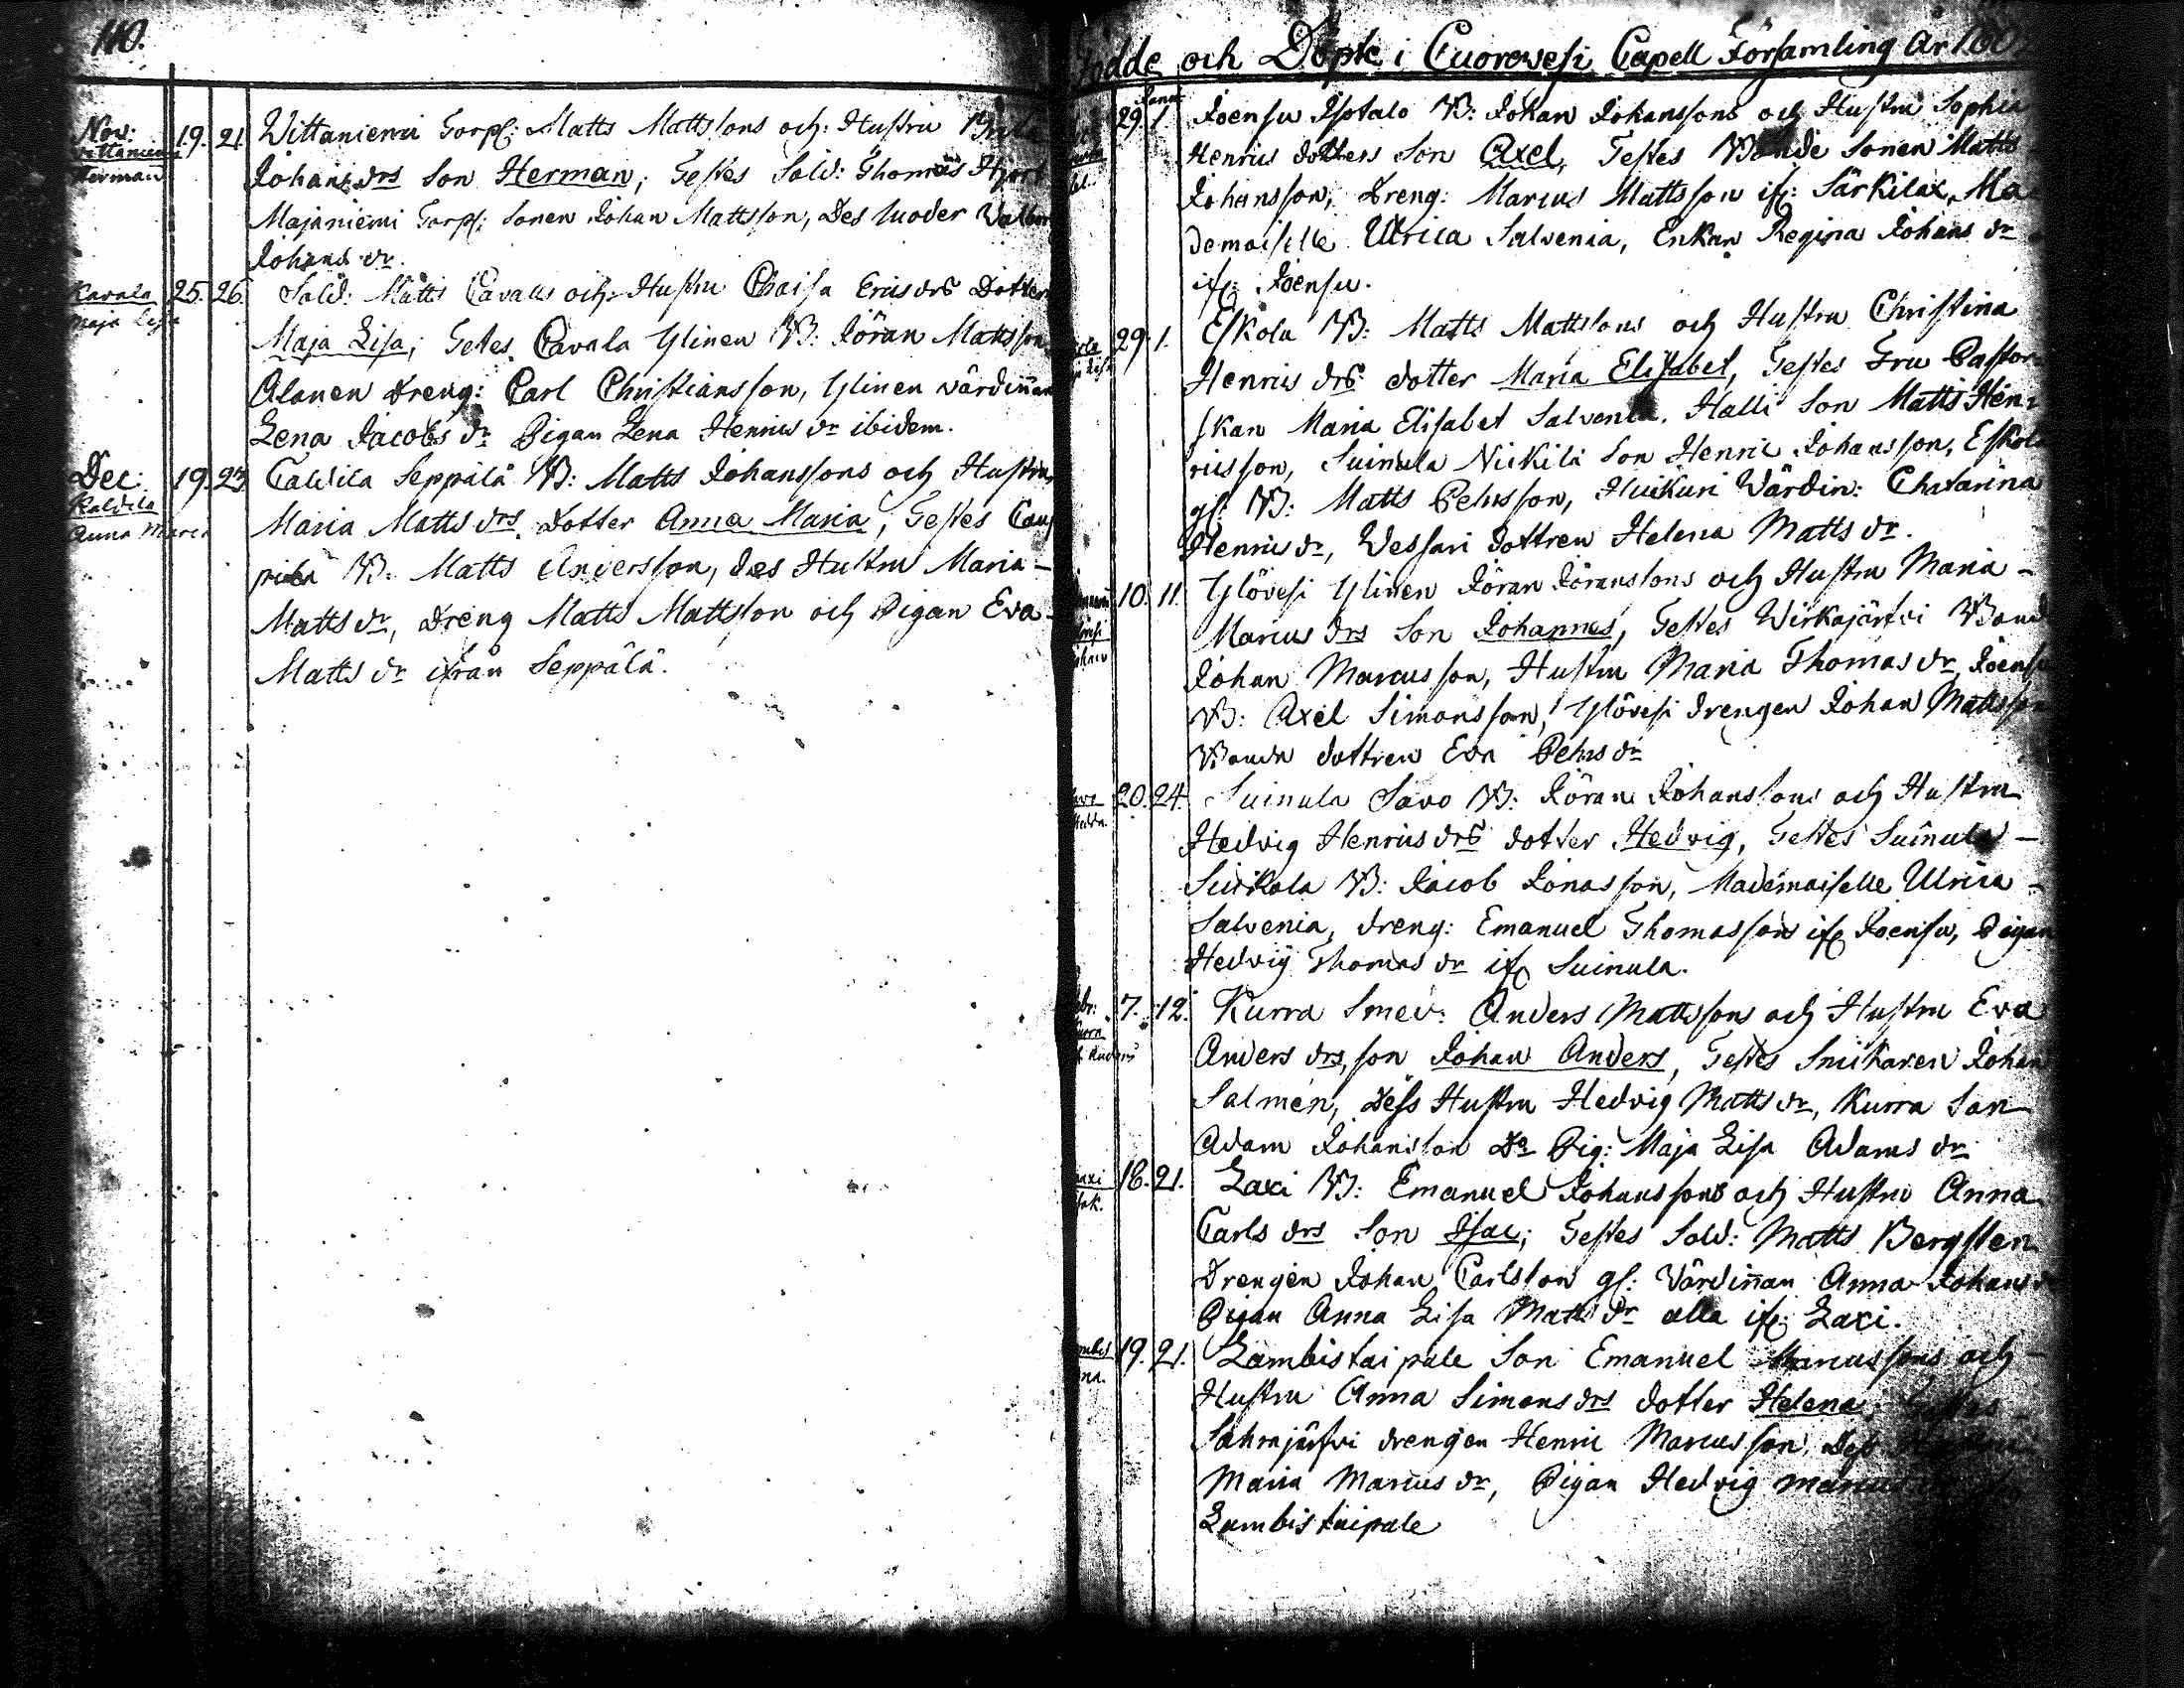 110.
Nov: 19. 21. Wittaniemi Torp: Matts Mattssons och Hustru
Wittaniemi
Herman
Johans drs Son Herman; Testes Sold: Thomas Hjort
Majaniemi Torp: Sonen Johan Mattsson, Des moder
Johans dr.
Kavala 25. 26. Sold: Matts Cavalls och Hustru Chaisa Erics drs Dotter
Maja Lisa
Maja Lisa; Testes. Cavala Ylinen B: Jöran Mattsson
Alanen Dreng: Carl Christiansson, Ylinen värdinnan
Lena Jacobs dr Pigan Lena Henrics dr ibidem.
Dec: 19. 23. Caldila Seppälä B: Matts Johanssons och Hustru
Kaldila
Anna Maria
Maria Matts drs. Dotter Anna Maria; Testes
B: Matts Andersson, des Hustru Maria -
Matts dr, Dreng Matts Mattsson och Pigan Eva -
Matts dr ifrån Seppälä.
Födde och Döpte i Cuorewesi Capell Församling År
Janu:
29. 1. Joensu Isotalo B: Johan Johanssons och Hustru Sophia
Henrics dotters Son Axel, Testes Bonde Sonen Matts
Johansson, Dreng: Marcus Mattsson ifr: Särkilax, Ma-
demoiselle Ulrica Salvenia, Enkan Regina Johans dr
ifr: Joensu.
29. 1. Eskola B: Matts Mattssons och Hustru Christina
Henrics drs dotter Maria Elisabet, Testes Fru Pastor-
skan Maria Elisabet Salvenia. Halli Son Matts Hen-
ricsson, Suinula Nickilä Son Henric Johansson, Eskola
gl: B: Matts Pehrsson, Huikuri Wärdin: Chatarina
Henrics dr, Wessari dottren Helena Matts dr.
10. 11. Ylövesi Ylinen Jöran Jöranssons och Hustru Maria -
Marcus drs Son Johannes, Testes Wirkajärfvi Bond
Johan Marcusson, Hustru Maria Thomas dr, Joensu
B: Axel Simonsson, Ylövesi drengen Johan Mattsson
Bonde dottren Eva Pehrs dr
Savo 20. 24. Suinula Savo B: Jöran Johanssons och Hustru
Hedda.
Hedvig Henrics drs dotter Hedvig, Testes Suinula -
B: Jacob Jonasson, Mademoiselle Ulrica -
Salvenia, dreng: Emanuel Thomasson ifr Joensu, Pigan
Hedvig Thomas dr ifr Suinula.
7. 12. Kurra Smed: Anders Mattssons och Hustru Eva
Anders drs, son Johan Anders, Testes Snickaren Johan
Salmén, Dess Hustru Hedvig Matts dr, Kurra Son
Adam Johansson Do Pig: Maja Lisa Adams dr
18. 21. Laxi B: Emanuel Johanssons och Hustru Anna
Carls drs Son Isac; Testes Sold: Matts Bergsten
Drengen Johan Carlsson gl: Värdinnan Anna Johans
Pigan Anna Lisa Matts dr alla ifr: Laxi.
19. 21. Lambistaipale Son Emanuel Marcussons och -
Hustru Anna Simons drs dotter Helena; Testes
Sahrajärfvi drengen Henric Marcusson, Dess
Maria Marcus dr, Pigan Hedvig Marcus
Lambistaipale